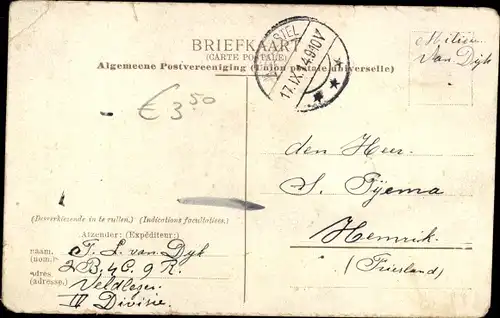 BRIEFKAART
(CARTE POSTALE)
Algemeene Postvereeniging (Union postale universelle)
17.IX.14.9-10V
Milicien
Van Dijk
€ 3,50
den Heer
S. Pijema
Hemrik.
(Friesland)
(Desverkiezende in te vullen.) (Indications facultatives.)
Afzender: (Expéditeur:)
naam. T. L. van Dijk
(nom.)
adres 2 B. 4 C. 9 R.
(adresse.) Veldleger
II Divisie.